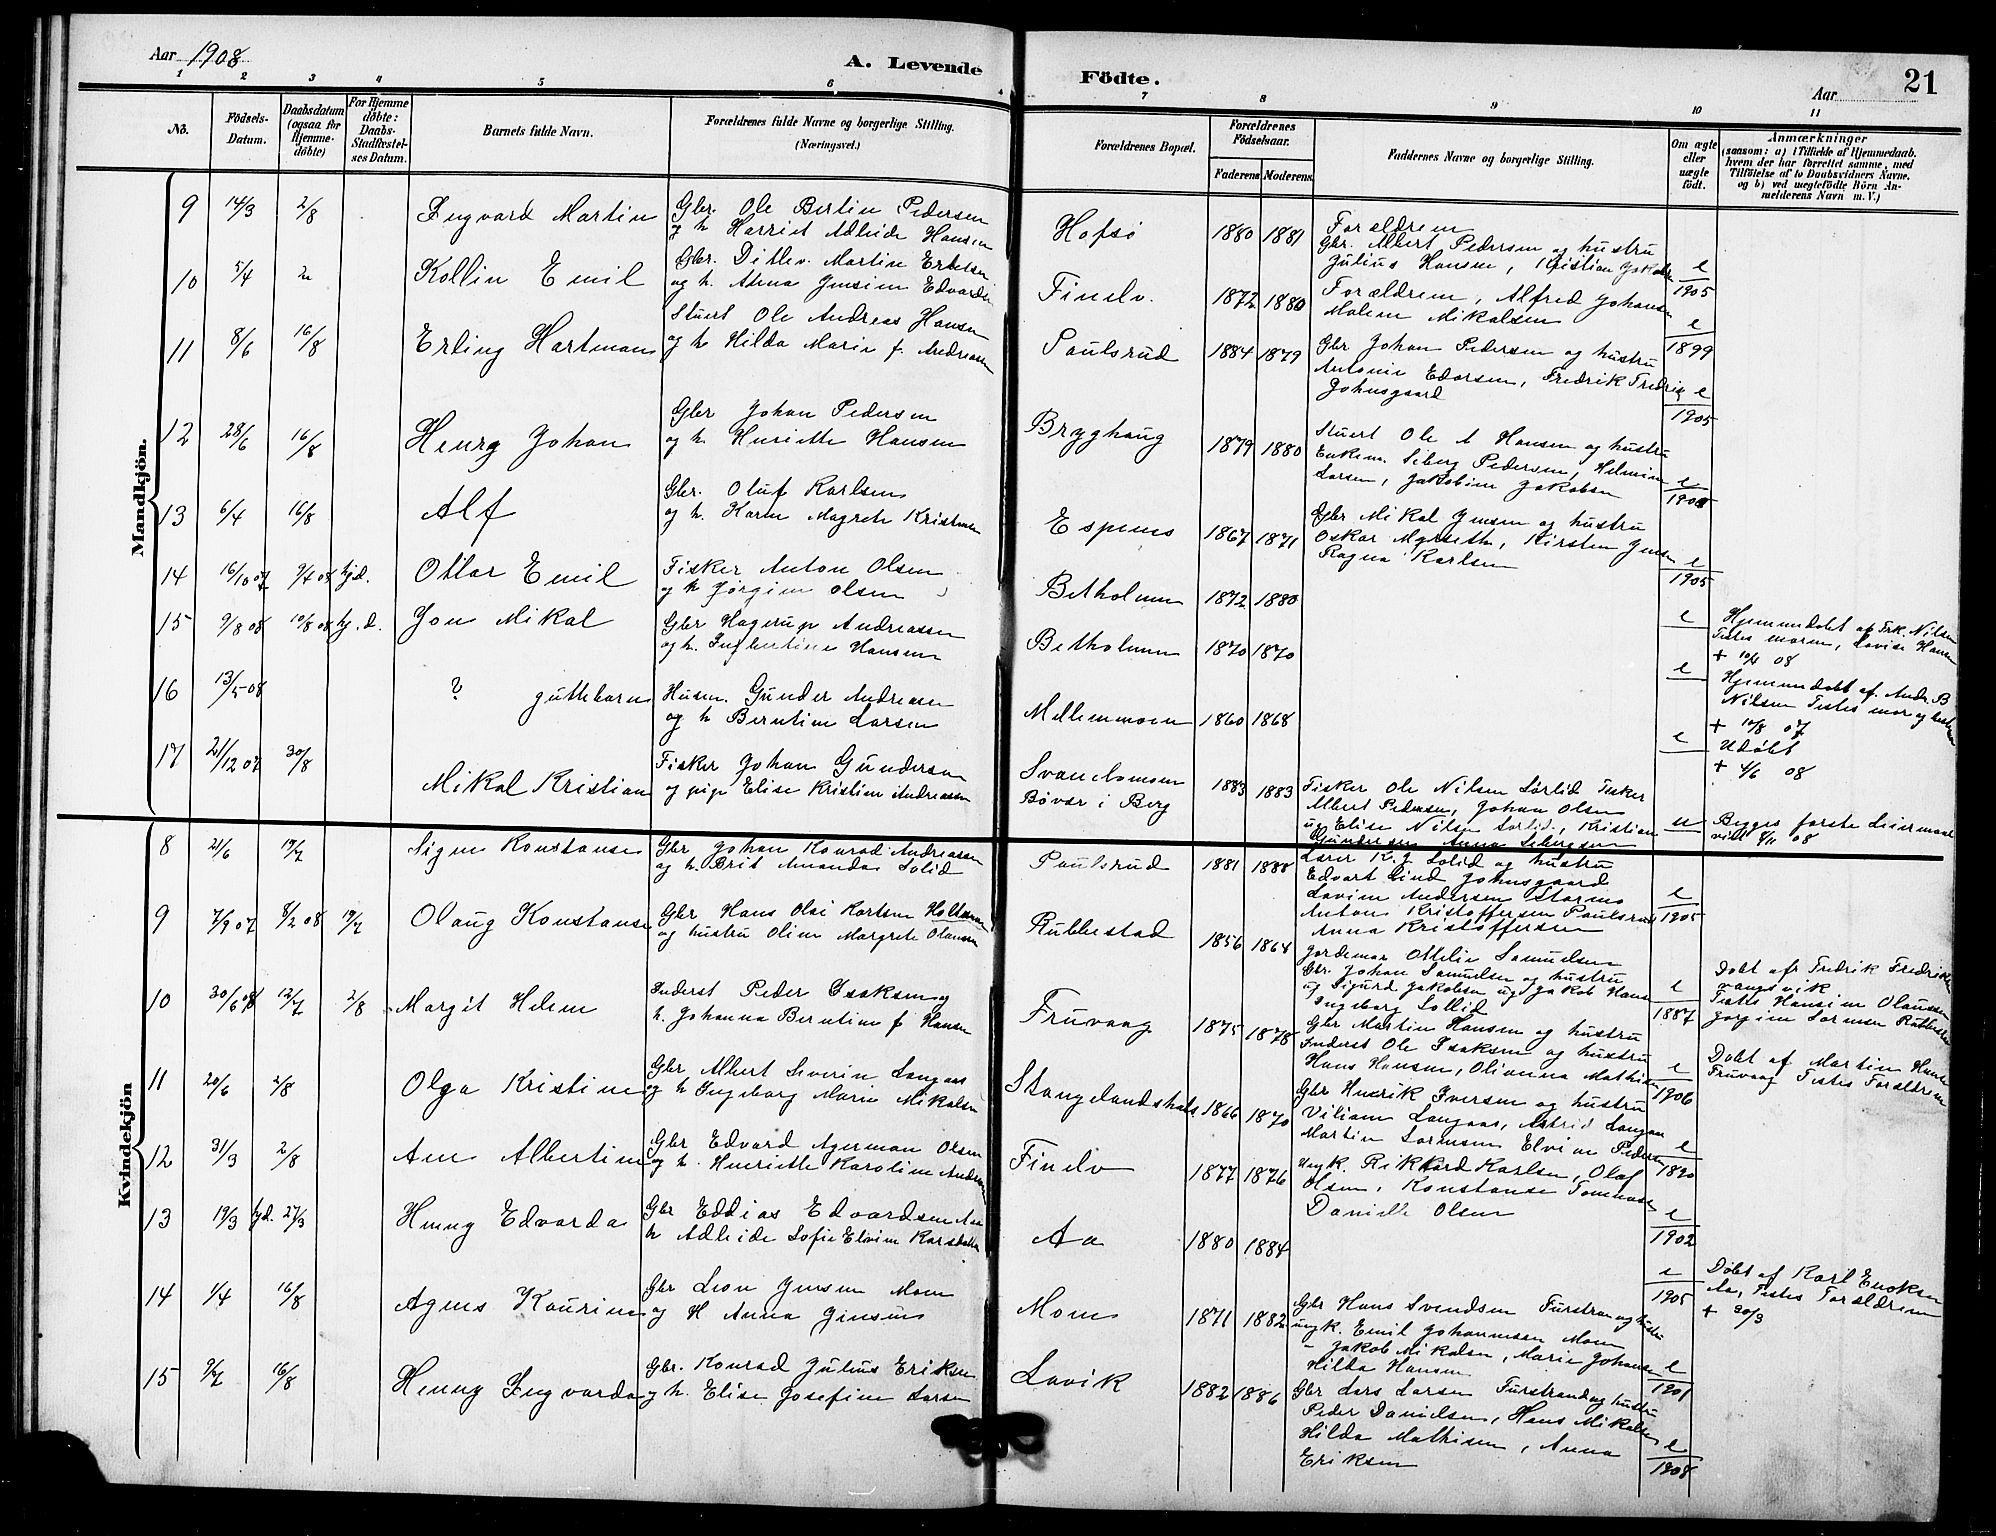 Aar 1908
A. Levende Födte.
Aar
21
1 2 3 4 5 6 7 8 9 10 11
No.
Födsels-Datum.
Daabsdatum (ogsaa for Hjemme-døbte)
For Hjemme døbte: Daabs-Stadfæstelses Datum.
Barnets fulde Navn.
Forældrenes fulde Navne og borgerlige Stilling.
(Næringsvei.)
Forældrenes Bopæl.
Forældrenes Födselsaar.
Faderens Moderens
Faddernes Navne og borgerlige Stilling.
Om ægte eller uægte födt.
Anmærkninger
(saasom: a) i Tilfælde af Hjemmedaab.
hvem der har forrettet samme, med
Tilföielse af to Daabsvidners Navne.
og b) ved uægtefödte Börn An-
melderens Navn m. V.)
Mandkjön.
9 14/3 2/8 Ingvard Martin
Gbr. Ole Bertin Pedersen
og h Harriet Adleide Hansen
Hofsø 1880 1881
Forældrene
Gbr. Albert Pedersen og hustru
Julius Hansen, Kristian Jakobsen
e 1905
10 5/4 Kollin Emil
Gbr. Ditlev Martin
og h. Anna Jensine
Finelv. 1872 1880
Forældrene, Alfred Johans
Malene Mikalsen
e 1899
11 8/6 16/8 Erling Hartman
Stuert Ole Andreas Hansen
og h Hilda Marie f. Andreasen
Paulsrud 1884 1879
Gbr Johan Pedersen og hustru
Antonie Edorsen, Fredrik Fredriks
Johnsgaard
e 1905
12 28/6 16/8 Henry Johan
Gbr Johan Pedersen
og h Henriette Hansen
Bryghaug 1879 1880
Stuert Ole A Hansen og hustru
Enkem. Siberg Pedersen, Helmine
Larsen, Jakobine Jakobsen
e
13 6/4 16/8 Alf
Gbr. Oluf Karlsen
og h. Karen Magrete Kristense
Espenes 1867 1871
Gbr Mikal Jensen og hustru
Oskar Myrseth, Kirsten Jensen
Ragna Karlsen
e 1905
14 16/10 07 9/4 08 hjd. Ottar Emil
Fisker Anton Olsen
og h Jørgine Olsen
Betholmen 1872 1880
e
Hjemmedøbt af Frk. Nilsen
Testes moren, Lovise Hansen
+ 10/4 08
15 9/8 08 10/8 08 hj. d. Jon Mikal
Gbr Hagerup Andreassen
og h. Ingbertine Hansen
Betholmen 1870 1870
e
Hjemmedøbt af. Andr. B
Nilsen Testes mor og
+ 10/8 07
16 13/5 08 ? guttebarn
Husm. Gunder Andreasen
og h Berntine Larsen
Mellemmoen 1860 1868
e
Udøbt
+ 4/6 08
17 21/12 07 30/8 Mikal Kristian
Fisker Johan Gundersen
og pige Elise Kristine Andreassen
Svandomoen
Bøvær i Berg
1883 1883
Fisker Ole Nilsen Sørlid Fisker
Albert Pedersen, Johan Olsen
og Elise Nilsen Sørlid, Kristian
Gundersen, Anna Sibergsen
u
Begges første Leiermaal
Kvindekjön
8 21/6 19/7 Signe Konstanse
Gbr Johan Konrad Andreassen
og h. Brit Amanda Solid
Paulsrud 1881 1888
Lærer K. J. Solid og hustru
Edvart Lind Johnsgaard
Lovine Andersen Stormo
Anton Kristoffersen Paulsrud
Anna Kristoffersen
e 1905
9 7/9 07 8/2 08 19/7 Olaug Konstanse
Gbr Hans Olai Kortsen Holteman
og hustru Oline Margrete Olausen
Rubbestad 1856 1864
Jordemor Ottilie Samuelsen
Gbr. Johan Samuelsen og hustru
og Sigurd Jakobsen ug. Jakob Hans
Ingeborg Sollid
e 1887
Døbt afr Fredrik Fredriksen
vangsvik
Testes Hansine Olaussen
Jørgine Sørensen Rubbestad
10 30/6 08 12/7 2/8 Margit Helene
Inderst Peder Isaksen og
h. Johanna Berntine f. Hansen
Fruvaag 1875 1878
Gbr Martin Hansen og hustru
Inderst Ole Isaksen og hustru
Hans Hansen, Olianna Mathisen
e 1906
Døbt af Martin Hansen
Fruvaag Testes Forældrene
11 20/6 2/8 Olga Kristine
Gbr Albert Severin Langaas
og h Ingeborg Marie Mikalsen
Stangelandshals 1866 1870
Gbr Henrik Iversen og hustru
Viliam Langaas, Astrid Langaas
Martin Sørensen Elvine Pedersen
e 1890
12 31/3 2/8 Ane Albertine
Gbr Edvard Agerman Olsen
og h. Henriette Karoline
Finelv 1877 1876
Ungk. Rikkard Karlsen, Olaf
Olsen, Konstanse Tomassen
Danielle Olsen
e 1902
13 19/3 hjd. 27/3 Henny Edvarda
Gbr Eddias Edvardsen Aa
h Adleide Sofie Elvine Karsdatter
Aa 1880 1884
e 1905
Døbt af Karl Enoksen
Aa, Testes Forældrene
+ 30/3
14 1/4 16/8 Agnes Kaurine
Gbr Leon Jensen Moen
og H Anna Jensens
Moen 1871 1882
Gbr Hans Svendsen Furstran og hustru
ungk. Emil Johannesen Moen
" Jakob Mikalsen, Marie Johansen
Hilda Hansen
e 1901
15 9/7 16/8 Henny Ingvarda
Gbr. Konrad Julius Eriksen
og h. Elise Josefine Larsen
Lavik 1882 1886
Gbr Lars Larsen Furstrand og hustru
Peder Danielsen, Hans Mikalsen
Hilda Mathisen, Anna
Eriksen
e 1908